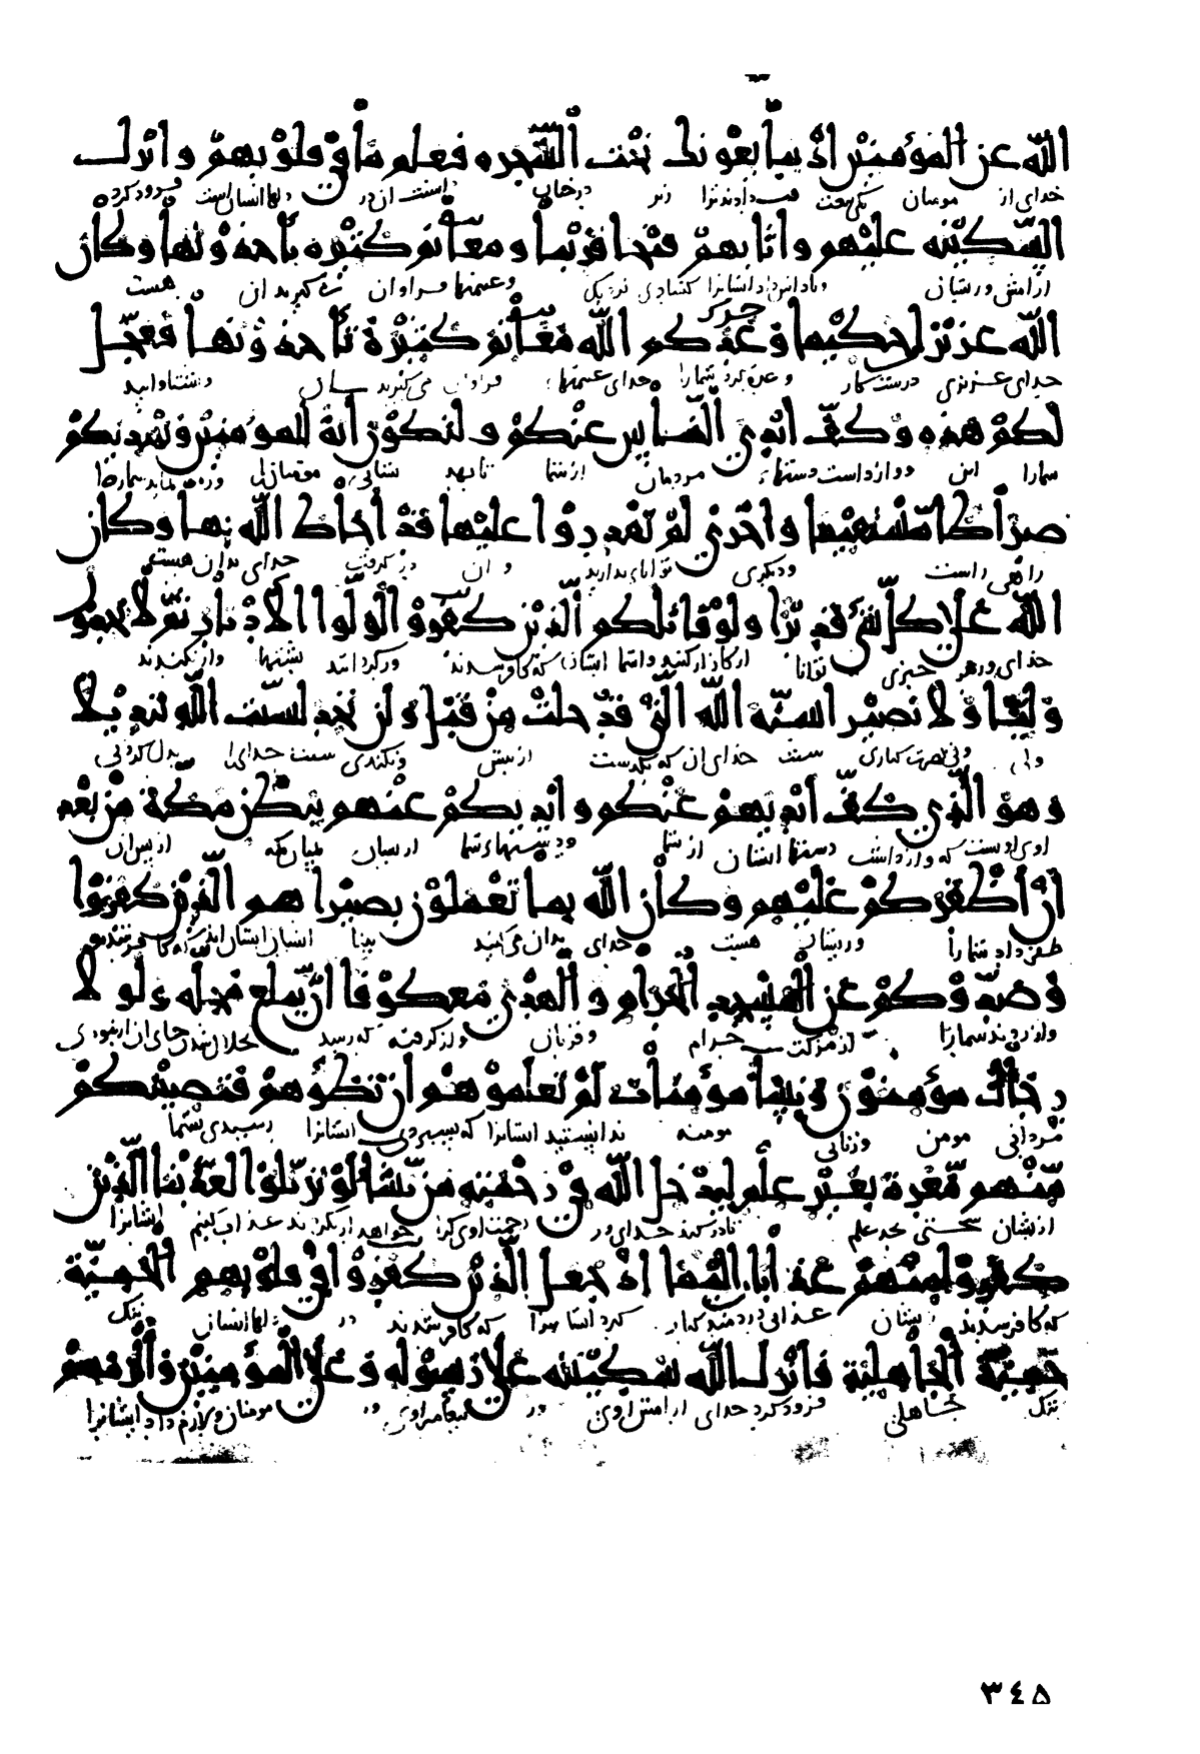 الله عن المؤمنين اذ يبايعونك تحت الشجره فعلم ما في قلوبهم وانزل
خدای از مومنان کی بیعت دادند ترا زیر درخت دانست آن در دلها ایشان است فرود کرد
السكينه عليهم واثابهم فتحا قريبا ومغانم كثيره ياخذونها وكان
آرامش ور ایشان و پاداش داد ایشانرا گشادی نزدیک و غنیمتها فراوان گیرند آن هست
الله عزيزا حكيما وعدكم الله مغانم كثيرة تاخذونها فعجل
خدای عزیزی درست کار وعده کرد شمارا خدای غنیمتها فراوان می گیرید
لكم هذه وكف ايدي الناس عنكم ولتكون اية للمؤمنين ويهديكم
شمارا این و وازداشت دستهاء مردمان از شما تا بهد نشانی
صراطا مستقيما واخرى لم تقدروا عليها قد احاط الله بها وكان
راهی راست و دیگری توانای ندارید ور آن خدای بدان هست
الله على كل شي قديرا ولو قاتلكم الذين كفروا لولوا الادبار ثم لا يجدون
خدای ور هر چیزی توانا ار کازار کنید واشما ایشان که کافر شدند ور گردانند پشتها
وليا ولا نصيرا سنة الله التي قد خلت من قبل ولن تجد لسنت الله تبديلا
ولی ونی نصرت کناری سنت خدای آن که بگدشت از پیش سنت خدای را بدل کردنی
وهو الذي كف ايديهم عنكم وايديكم عنهم ببطن مكة من بعد
اوی اوست که وازداشت دستها ایشان از شما ودستهاء شما ازیشان میان مکه از پس آن
ان اظفركم عليهم وكان الله بما تعملون بصيرا هم الذين كفروا
ظفر داد شمارا ور ایشان هست خدای بدان می کنید بینا ایشان ایشان اند که کافر شدند
وصدوكم عن المسجد الحرام والهدي معكوفا ان يبلغ محله ولولا
از مزکت حرام و قربان واز گرفته که رسد
رجال مؤمنون ونساء مؤمنات لم تعلموهم ان تطؤهم فتصيبكم
مردانی مومن وزنانی مومنه ندانستید ایشانرا که بسپردی ایشانرا برسیدی بشما
منهم معرة بغير علم ليدخل الله في رحمته من يشا لو تزيلوا لعذبنا الذين
ازیشان سختی بجد علم تا در کند خدای در رحمت اوی کرا خواهد عذاب کنیم ایشانرا
كفروا منهم عذابا اليما اذ جعل الذين كفروا في قلوبهم الحمية
که کافر شدند زیشان عذابی دردمند کنار کافر شدند در دلها ایشان ننگ
حمية الجاهلية فانزل الله سكينته على رسوله وعلى المؤمنين والزمهم
ننگ جاهلی فرود کرد خدای آرامش اوی ور پیغامبر اوی ور مومنان ولازم داد ایشانرا
۳٤۵